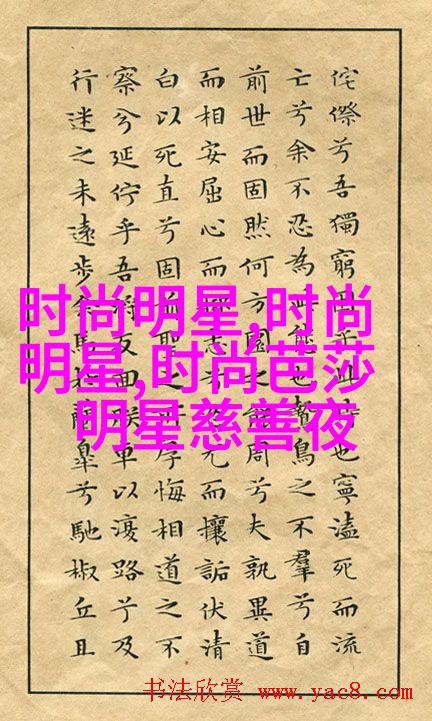 侘傺兮吾獨窮困乎此時也寧溘死而流
亡兮余不忍為此態也鷙鳥之不羣兮自
前世而固然何方圜之能周兮夫孰異道
而相安屈心而抑志兮忍尤而攘詬伏清
白以死直兮固前聖之所厚悔相道之不
察兮延佇乎吾將反回朕車以復路兮及
行迷之未遠步余馬於蘭皋兮馳椒丘且
时尚明星,时尚
明星,时尚芭莎
明星慈善夜
书法欣赏 www.yac8.com